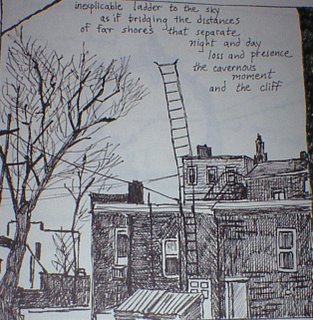 inexplicable ladder to the sky
as if bridging the distances
of far shores that separate
night and day
loss and presence
the cavernous
moment
and the cliff